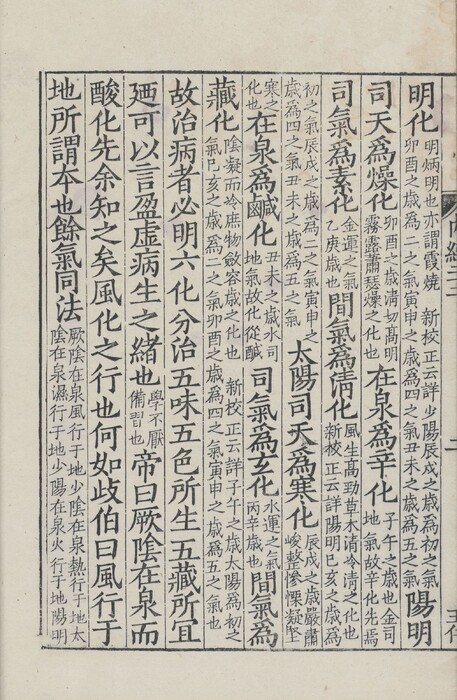 明化明炳明也亦謂霞燒　新校正云詳少陽辰戌之歲為初之氣卯酉之歲為二之氣寅申之歲為四之氣丑未之歲為五之氣陽明
司天為燥化卯酉之歲清切高明霧露蕭瑟燥之化也在泉為辛化子午之歲也金司地氣故辛化先焉
司氣為素化金運之氣乙庚歲也間氣為清化風生高勁草木清冷清之化也新校正云詳陽明巳亥之歲為
初之氣辰戌之歲為二之氣寅申之歲為四之氣丑未之歲為五之氣太陽司天為寒化辰戌之歲嚴肅峻整慘慄凝堅
寒之化也在泉為鹹化丑未之歲水司地氣故化從鹹司氣為玄化水運之氣丙辛歲也間氣為
藏化陰凝而冷庶物斂容歲之化也　新校正云詳子午之歲太陽為初之氣巳亥之歲為二之氣卯酉之歲為四之氣寅申之歲為五之氣也
故治病者必明六化分治五味五色所生五藏所宜
廼可以言盈虛病生之緒也學不厭備習也帝曰厥陰在泉而
酸化先余知之矣風化之行也何如歧伯曰風行于
地所謂本也餘氣同法厥陰在泉風行于地少陰在泉熱行于地太陰在泉濕行于地少陽在泉火行于地陽明